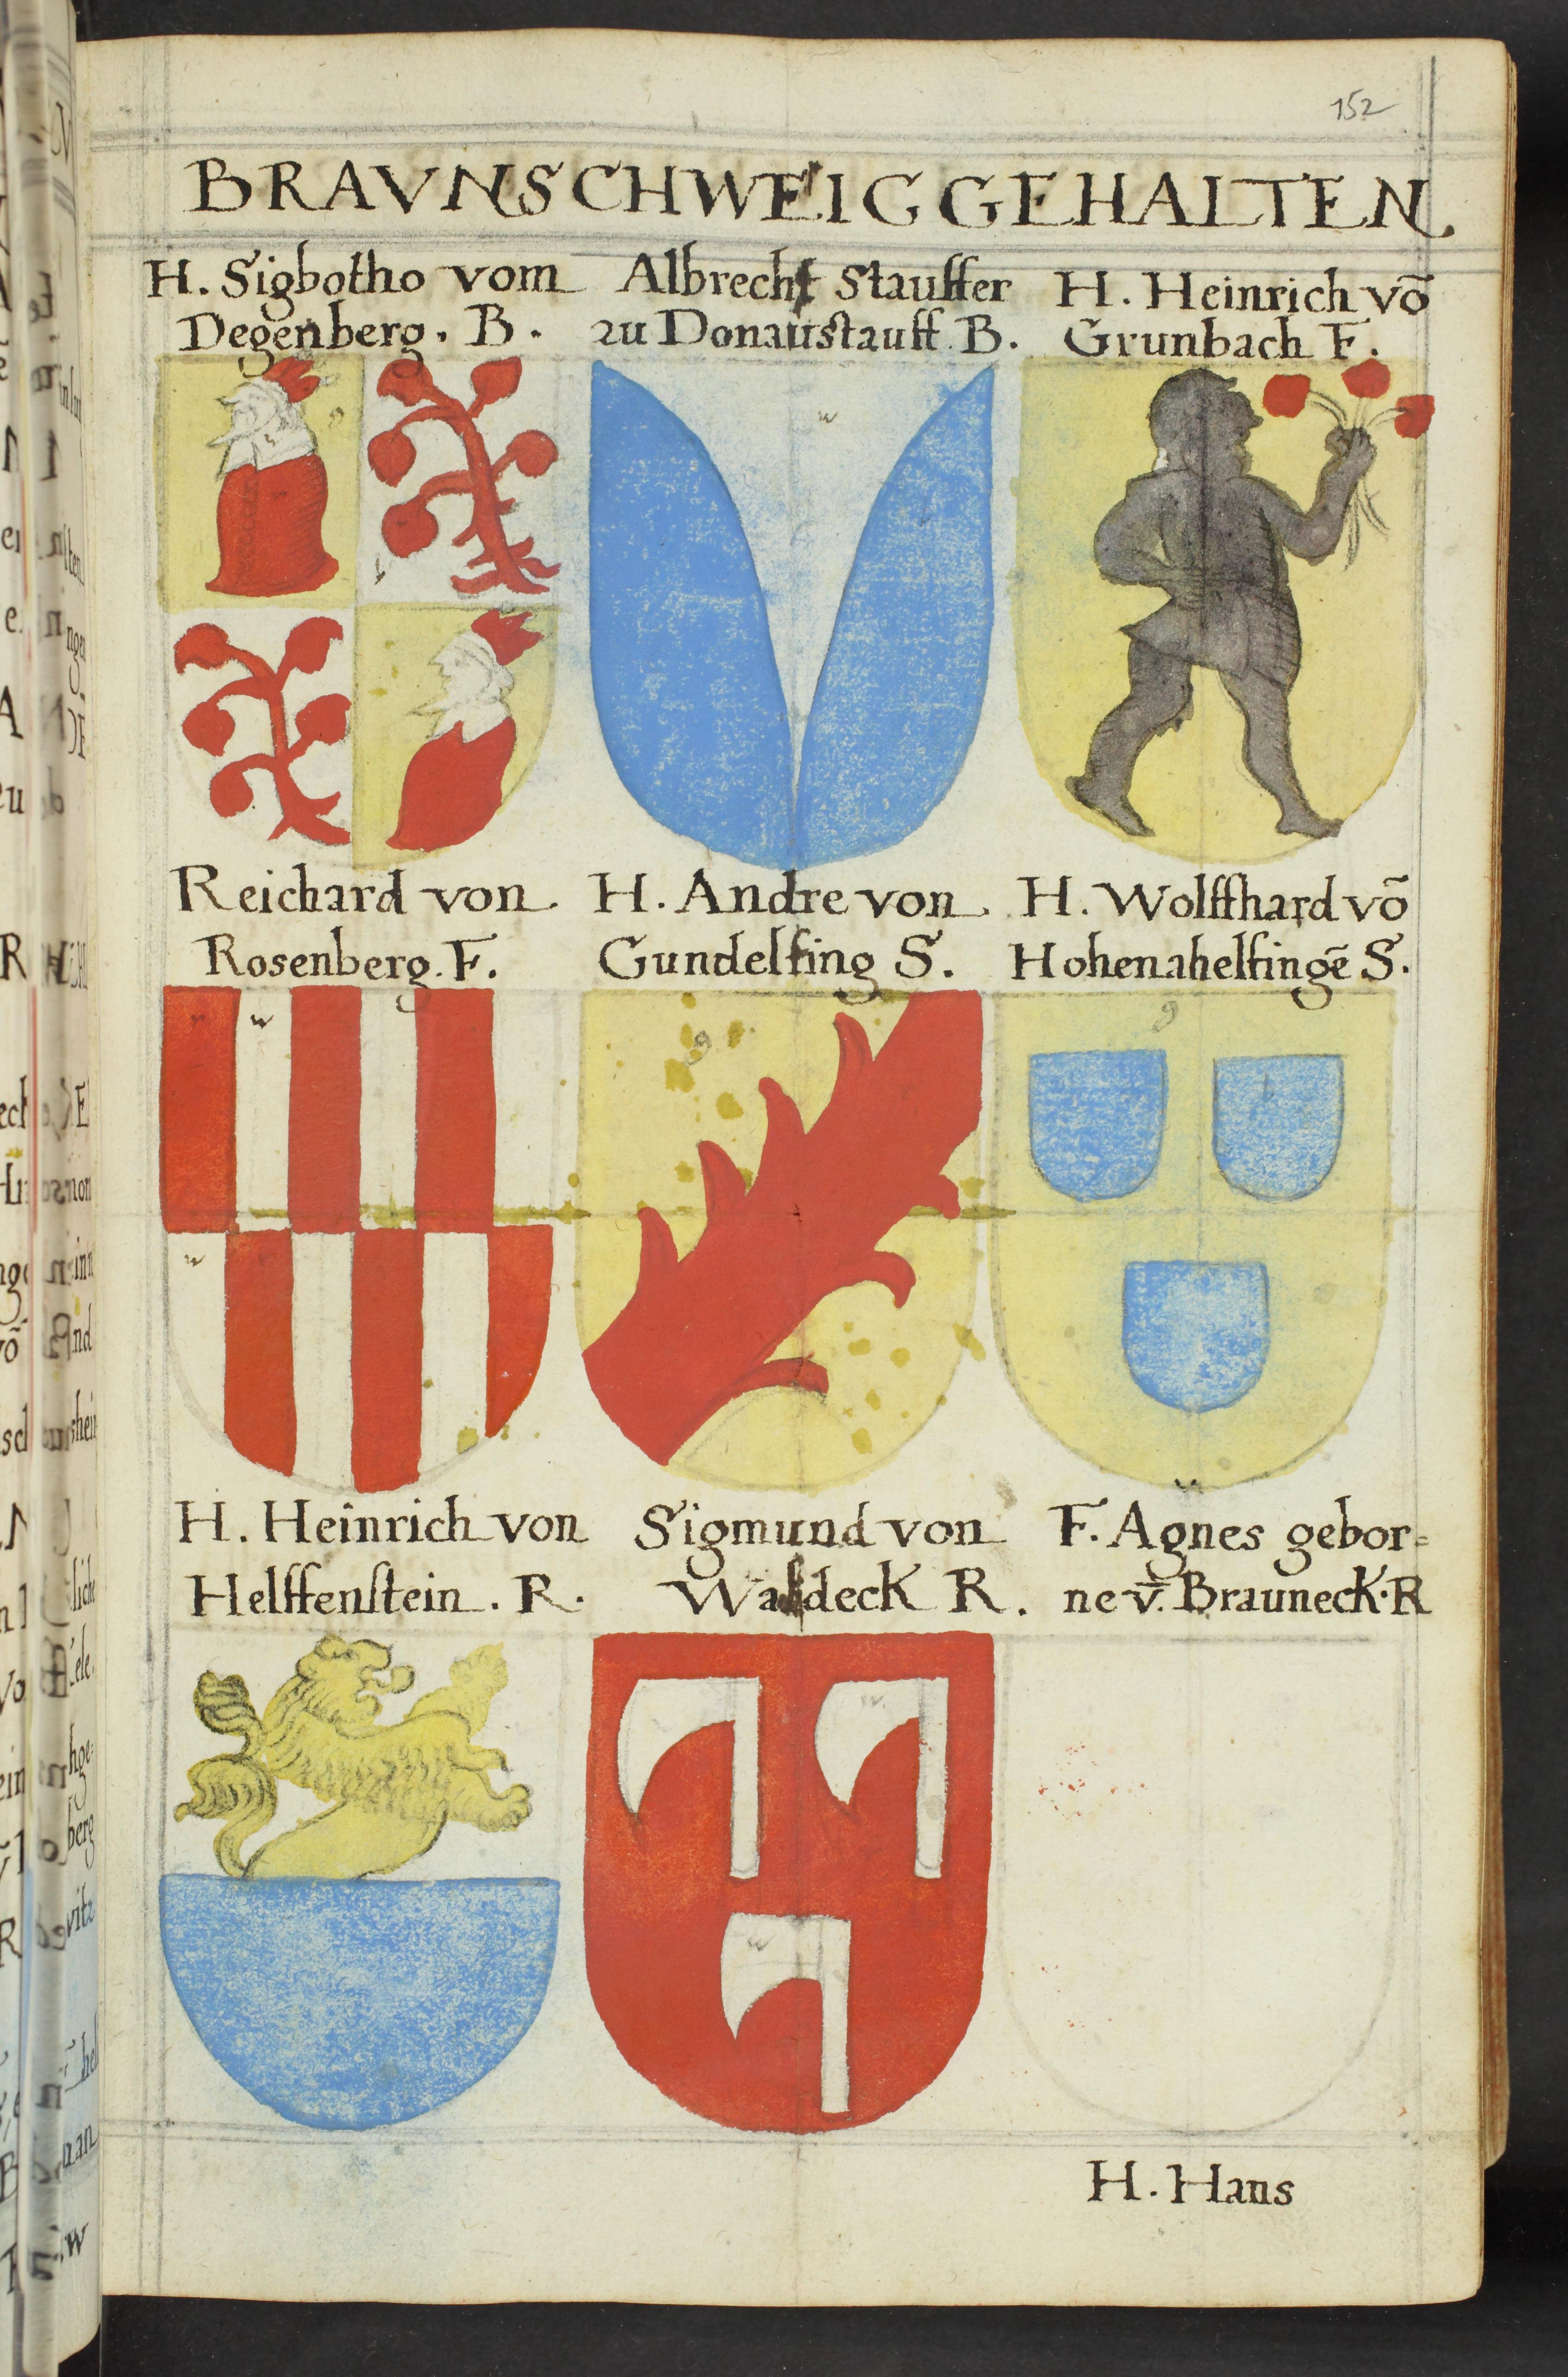 152
BRAVNSCHWEIG GEHALTEN.
H. Sigbotho vom
Degenberg. B.
Albrecht Stauffer
zu Donaustauff B.
H. Heinrich vō
Grunbach F.
Reichard von
Rosenberg. F.
H. Andre von
Gundelfing S.
H. Wolffhard vō
Hohenahelfingē S.
H. Heinrich von
Helffenstein. R.
Sigmund von
Waldeck R.
F. Agnes gebor=
ne v̄. Brauneck. R
H. Hans